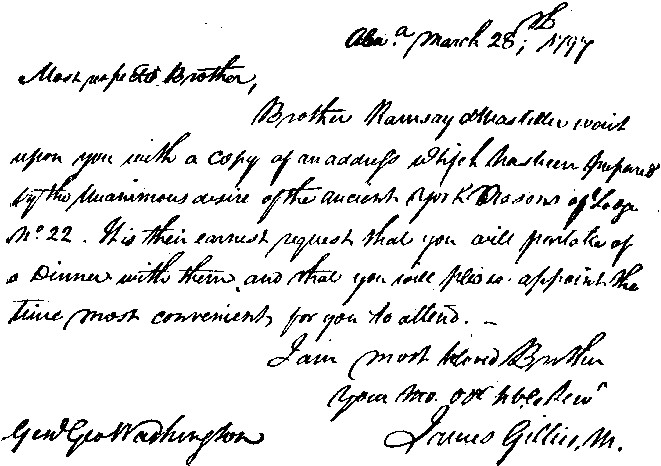 Alexa. March 28th, 1797
Most respectd. Brother,
Brothers Ramsay & Marsteller wait
upon you with a copy of an address which has been prepared
by the Unanimous desire of the ancient York Masons of Lodge
No. 22. It is their earnest request that you will partake of
a Dinner with them, and that you will please appoint the
time most convenient for you to attend. —
I am most beloved Brother
Your Mo. Obt. hble Servt
James Gillies, M.
Genl. Geo Washington